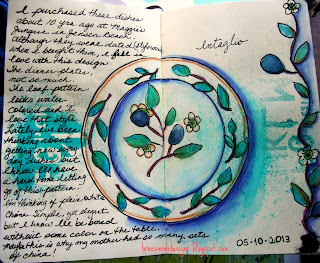 I purchased these dishes
about 10 yrs ago at Maggie's
in Jensen Beach
although they were dated
when I bought them, I fell in
love with this design
The dinner plates,
not so much
The leaf pattern
looks water
colored and I
love that style
Lately I've been
thinking about
getting new every
day dishes but
I know I'll have
a hard time letting
go of this pattern.
I'm thinking of plain white
china. Simple, yet elegant
but I know I'll be bored
without some color on the table...
maybe this is why my mother had so many sets
of china!
Intaglio
05.10.2013